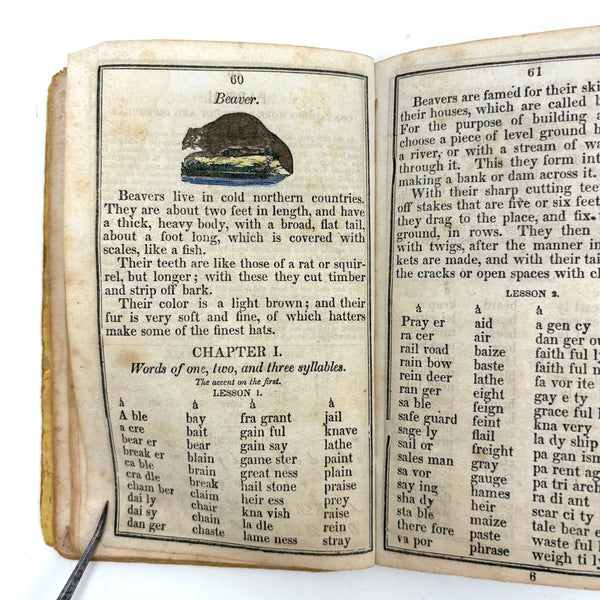 60
Beaver.
Beavers live in cold northern countries.
They are about two feet in length, and have
a thick, heavy body, with a broad, flat tail,
about a foot long, which is covered with
scales, like a fish.
Their teeth are like those of a rat or squir-
rel, but longer; with these they cut timber
and strip off bark.
Their color is a light brown; and their
fur is very soft and fine, of which hatters
make some of the finest hats.
CHAPTER I.
Words of one, two, and three syllables.
The accent on the first.
LESSON 1.
à à à à
A ble bay fra grant jail
a cre bait gain ful knave
bear er bear gain say lathe
break er blain game ster paint
ca ble brain great ness plain
cra dle break hail stone praise
cham ber claim heir ess prey
dai ly chair kna vish raise
dai sy chain la dle rein
dan ger chaste lame ness stray
61
Beavers are famed for their
their houses, which are called
For the purpose of building
choose a piece of level ground
a river, or with a stream of
through it. This they form
making a bank or dam across it.
With their sharp cutting
off stakes that are five or six
they drag to the place, and fix
ground, in rows. They then
with twigs, after the manner in
kets are made, and with their
the cracks or open spaces with
LESSON 2.
à à à
Pray er aid a gen cy
ra cer air dan ger
rail road baize faith ful
rain bow baste faith ful
rein deer lathe fa vor ite
ran ger eight gay e ty
sa ble feign grace ful
safe guard feint kna very
sage ly flail la dy ship
sail or freight pa gan
sales man gray pa rent
sa vor gauge pa tri
say ing hames ra di ant
sha dy heir scar ci ty
sta ble maize tale bear
there fore paste waste ful
va por phrase weigh ti
6